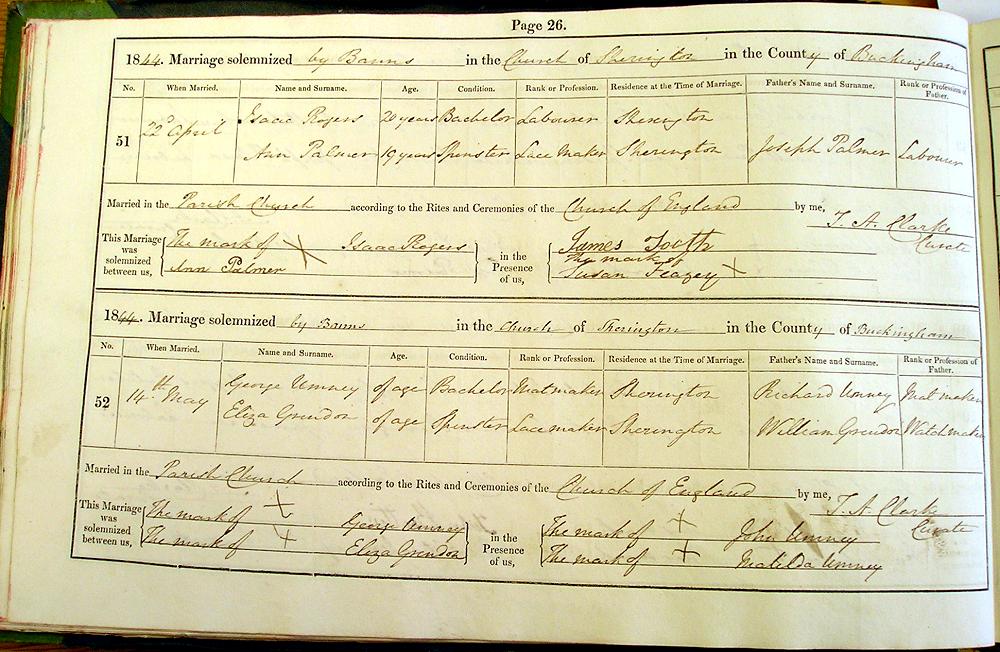 Page 26.
1844. Marriage solemnized by Banns in the Church of Sherington in the County of Buckingham
No. When Married. Name and Surname. Age. Condition. Rank or Profession. Residence at the Time of Marriage. Father's Name and Surname. Rank or Profession of Father.
51 22d April Isaac Rogers 20 years Bachelor Labourer Sherington
Ann Palmer 19 years Spinster Lace Maker Sherington Joseph Palmer Labourer
Married in the Parish Church according to the Rites and Ceremonies of the Church of England by me, T. A. Clarke Curate
This Marriage was solemnized between us, The mark of X Isaac Rogers in the Presence of us, James Tooth
Ann Palmer The mark of Susan Feazey X
1844. Marriage solemnized by Banns in the Church of Sherington in the County of Buckingham
No. When Married. Name and Surname. Age. Condition. Rank or Profession. Residence at the Time of Marriage. Father's Name and Surname. Rank or Profession of Father.
52 14th May George Umney of age Bachelor Matmaker Sherington Richard Umney Mat maker
Eliza Grendon of age Spinster Lace maker Sherington William Grendon Watch maker
Married in the Parish Church according to the Rites and Ceremonies of the Church of England by me, T. A. Clarke Curate
This Marriage was solemnized between us, The mark of X George Umney in the Presence of us, The mark of X John Umney
The mark of X Eliza Grendon The mark of X Matilda Umney